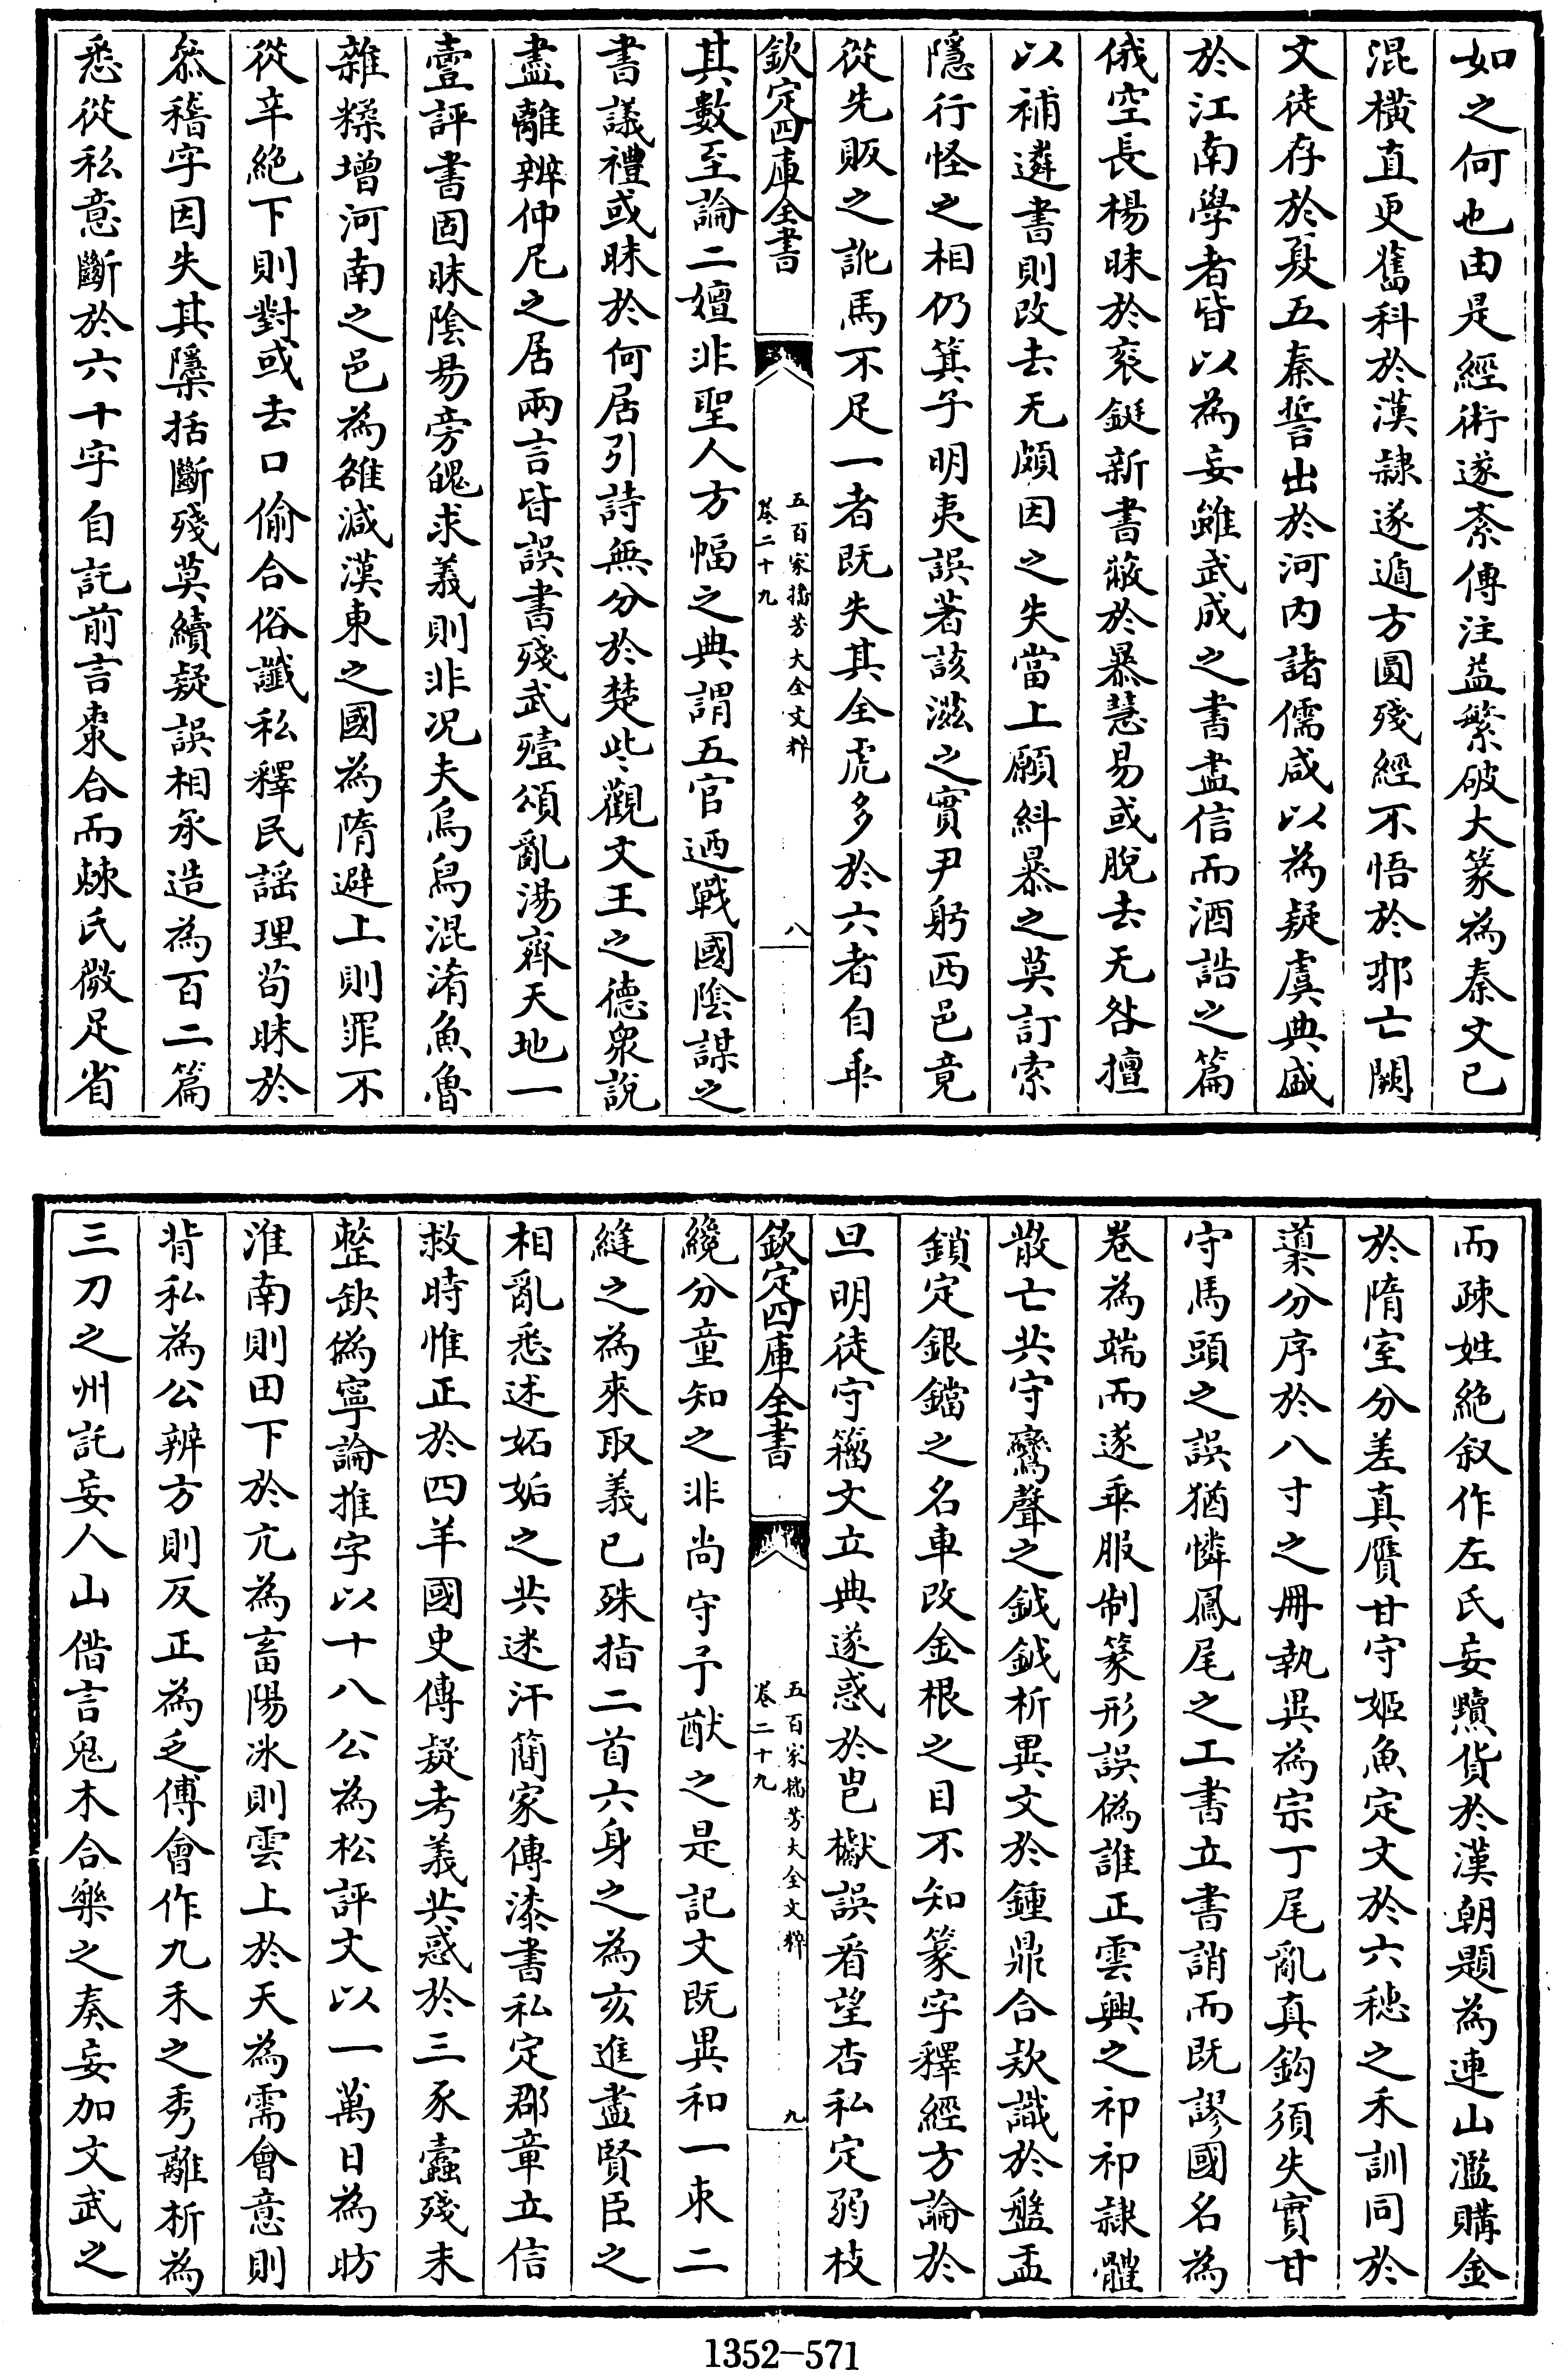 如之何也由是經術遂紊傳注益繁破大篆為秦文已
混橫直更舊科於漢隸遂遁方圓殘經不悟於郭亡闕
文徒存於夏五秦誓出於河内諸儒咸以為疑虞典盛
於江南學者皆以為妄雖武成之書盡信而酒誥之篇
俄空長楊昧於衮鋋新書蔽於暴慧易或脫去无咎擅
以補遴書則改去无頗因之失當上願糾暴之莫訂索
隱行怪之相仍箕子明夷誤著該滋之實尹躬西邑竟
從先畈之訛馬不足一者既失其全虎多於六者自乖
欽定四庫全書
五百家播芳大全文粹
卷二十九
八
其數至論二嬗非聖人方幅之典謂五官廼戰國陰謀之
書議禮或昧於何居引詩無分於楚些觀文王之德衆說
盡離辨仲尼之居兩言皆誤書殘武殪頌亂湯齊天地一
壹評書固昧陰易旁魄求義則非况夫烏鳥混淆魚魯
雜糅增河南之邑為雒減漢東之國為隋避上則罪不
從辛絶下則對或去口偷合俗讖私釋民謡理苟昧於
叅稽字因失其隱括斷殘莫續疑誤相承造為百二篇
悉從私意斷於六十字自託前言棗合而棘氏微足省
而疎姓絶叙作左氏妄黷貨於漢朝題為連山濫購金
於隋室分差真贋甘守姬魚定文於六穗之禾訓同於
䆃分序於八寸之冊執異為宗丁尾亂真鈎須失實甘
守馬頭之誤猶憐鳳尾之工書立書誚而既謬國名為
卷為端而遂乖服制篆形誤偽誰正雲興之祁祁隸體
散亡共守鸞聲之鉞鉞析異文於鍾鼎合欵識於盤盂
鎖定銀鐺之名車改金根之目不知篆字釋經方論於
旦明徒守籀文立典遂惑於邕櫱誤看望杏私定弱枝
欽定四庫全書
五百家播芳大全文粹
卷二十九
九
纔分童知之非尚守予猷之是記文既異和一朿二
縫之為來取義已殊指二首六身之為亥進盡賢臣之
相亂悉述妬姤之共迷汗簡家傳漆書私定郡章立信
救時惟正於四羊國史傳疑考義共惑於三豕蠹殘未
整缺偽寧論推字以十八公為松評文以一萬日為昉
淮南則田下於亢為畜陽冰則雲上於天為需會意則
背私為公辨方則反正為乏傅會作九禾之秀離析為
三刀之州託妄人山借言鬼木合樂之奏妄加文武之
1352-571